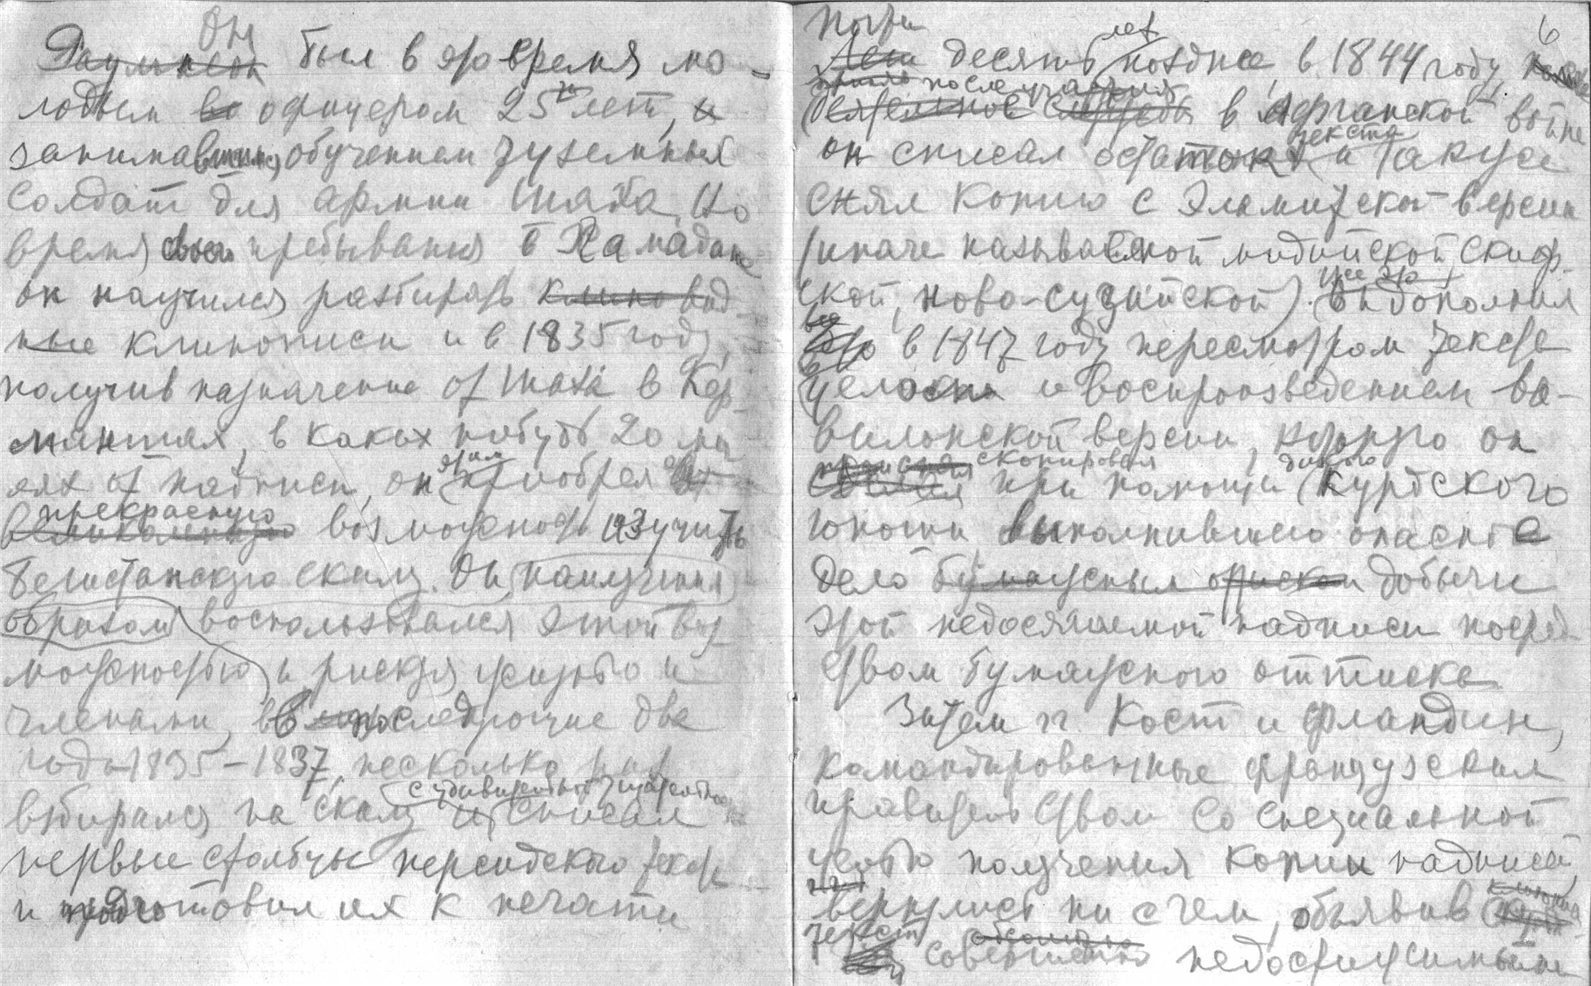 Он
Раулинсон был в это время мо-
лодым офицером 25 ти лет, и
занимавшимся обучением туземных
солдат для армии шаха. Во
время своего пребывания в Хамадане
он научился разбирать клиновид-
ные клинописи и в 1835 году,
получив назначение от шаха в Кер-
маншах, в каких нибудь 20 ми-
лях от надписи, он этим приобрел
прекрасную
великолепную возможность изучить
Бегистанскую скалу. Он наилучшим
образом воспользовался этой воз
можностью и рискуя жизнью и
членами, в последующие два
года 1835-1837, несколько раз
с удивительной тщательностью
взбирался на скалу и списал
первые столбцы персидского текста
и подготовил их к печати
6
почти лет
десять позднее, в 1844 году,
после участия
в Афганской войне
текста
он списал остаток а также
снял копию с Эламитской версии
(иначе называемой мидийской, скиф-
ской, ново-сузийской). Он дополнил
все это
в 1847 году пересмотром текста
целого и воспроизведением ва-
вилонской версии, которую он
скопировал дикого
при помощи курдского
юноши, выполнившего опасное
дело бумажным оттиском добычи
этой недосягаемой надписи посред
ством бумажного оттиска
Затем гг. Кост и Фланден,
командированные французским
правительством со специальной
целью получения копии надписей,
вернулись ни с чем, объявив
текст абсолютно
совершенно недостижимым